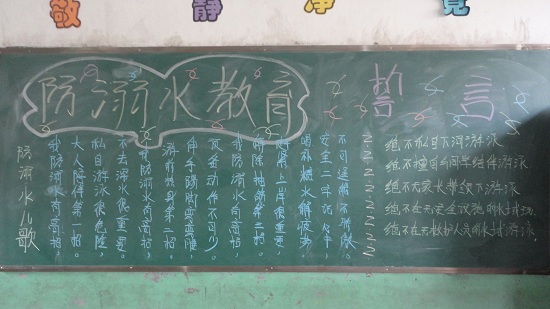 敬 静 净
防溺水教育
防溺水儿歌
我防溺水有高招,
大人陪伴第一招。
私自游泳很危险,
不去深水很重要。
我防溺水有高招,
游前热身第二招。
伸手踢脚要弯腰,
反复动作不可少。
我防溺水有高招,
抽筋第三招。
喝补糖水解疲劳,
上岸很重要。
安全二字记心中,
不可逞能不骄傲。
誓言
绝不私自下河游泳
绝不擅自与同学结伴游泳
绝不无家长带领下游泳
绝不在无安全设施的水域游玩
绝不在无救护人员的水域游泳